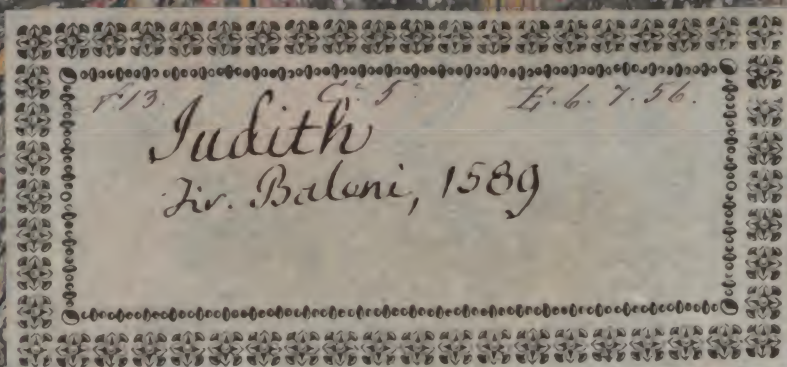 F 13. C. 5. E. 6. 7. 56.
Judith
Fir. Baleni, 1589